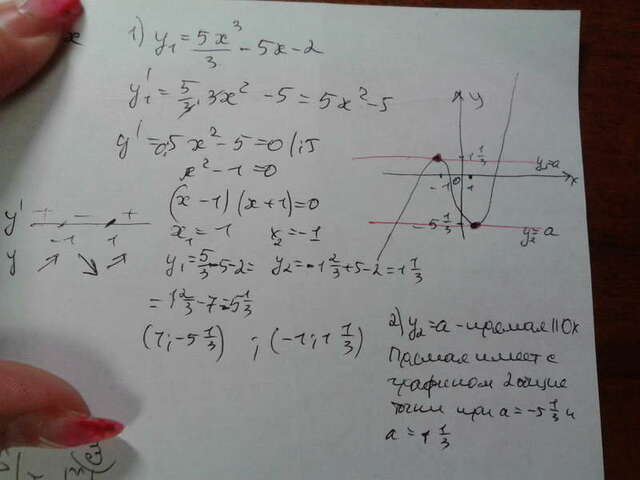 x
1) y₁ = 5x³/3 - 5x - 2
y₁' = 5/3 · 3x² - 5 = 5x² - 5
y' = 0; 5x² - 5 = 0 | : 5
x² - 1 = 0
(x - 1)(x + 1) = 0
x₁ = 1 x₂ = -1
y₁ = 5/3 - 5 - 2 = y₂ = -1 2/3 + 5 - 2 = 1 1/3
= 1 2/3 - 7 = 5 1/3
(1; -5 1/3) ; (-1; 1 1/3)
y' + - +
-1 1
y ↗ ↘ ↗
y
1 1/3 y₂=a
-1 0 1 x
-5 1/3 y₂=a
2) y₂ = a - прямая || Ox
Прямая имеет с
графиком 2 общие
точки при a = -5 1/3 и
a = 1 1/3